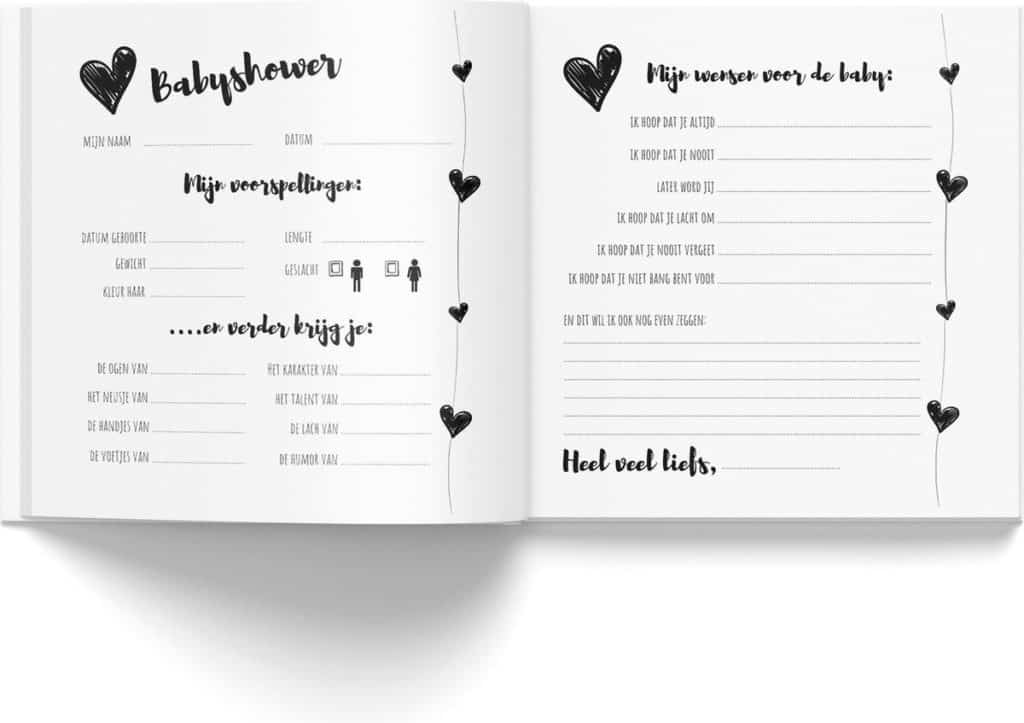 Babyshower
MIJN NAAM
DATUM
Mijn voorspellingen:
DATUM GEBOORTE
LENGTE
GEWICHT
GESLACHT
KLEUR HAAR
....en verder krijg je:
DE OGEN VAN
HET KARAKTER VAN
HET NEUSJE VAN
HET TALENT VAN
DE HANDJES VAN
DE LACH VAN
DE VOETJES VAN
DE HUMOR VAN
Mijn wensen voor de baby:
IK HOOP DAT JE ALTIJD
IK HOOP DAT JE NOOIT
LATER WORD JIJ
IK HOOP DAT JE LACHT OM
IK HOOP DAT JE NOOIT VERGEET
IK HOOP DAT JE NIET BANG BENT VOOR
EN DIT WIL IK OOK NOG EVEN ZEGGEN:
Heel veel liefs,